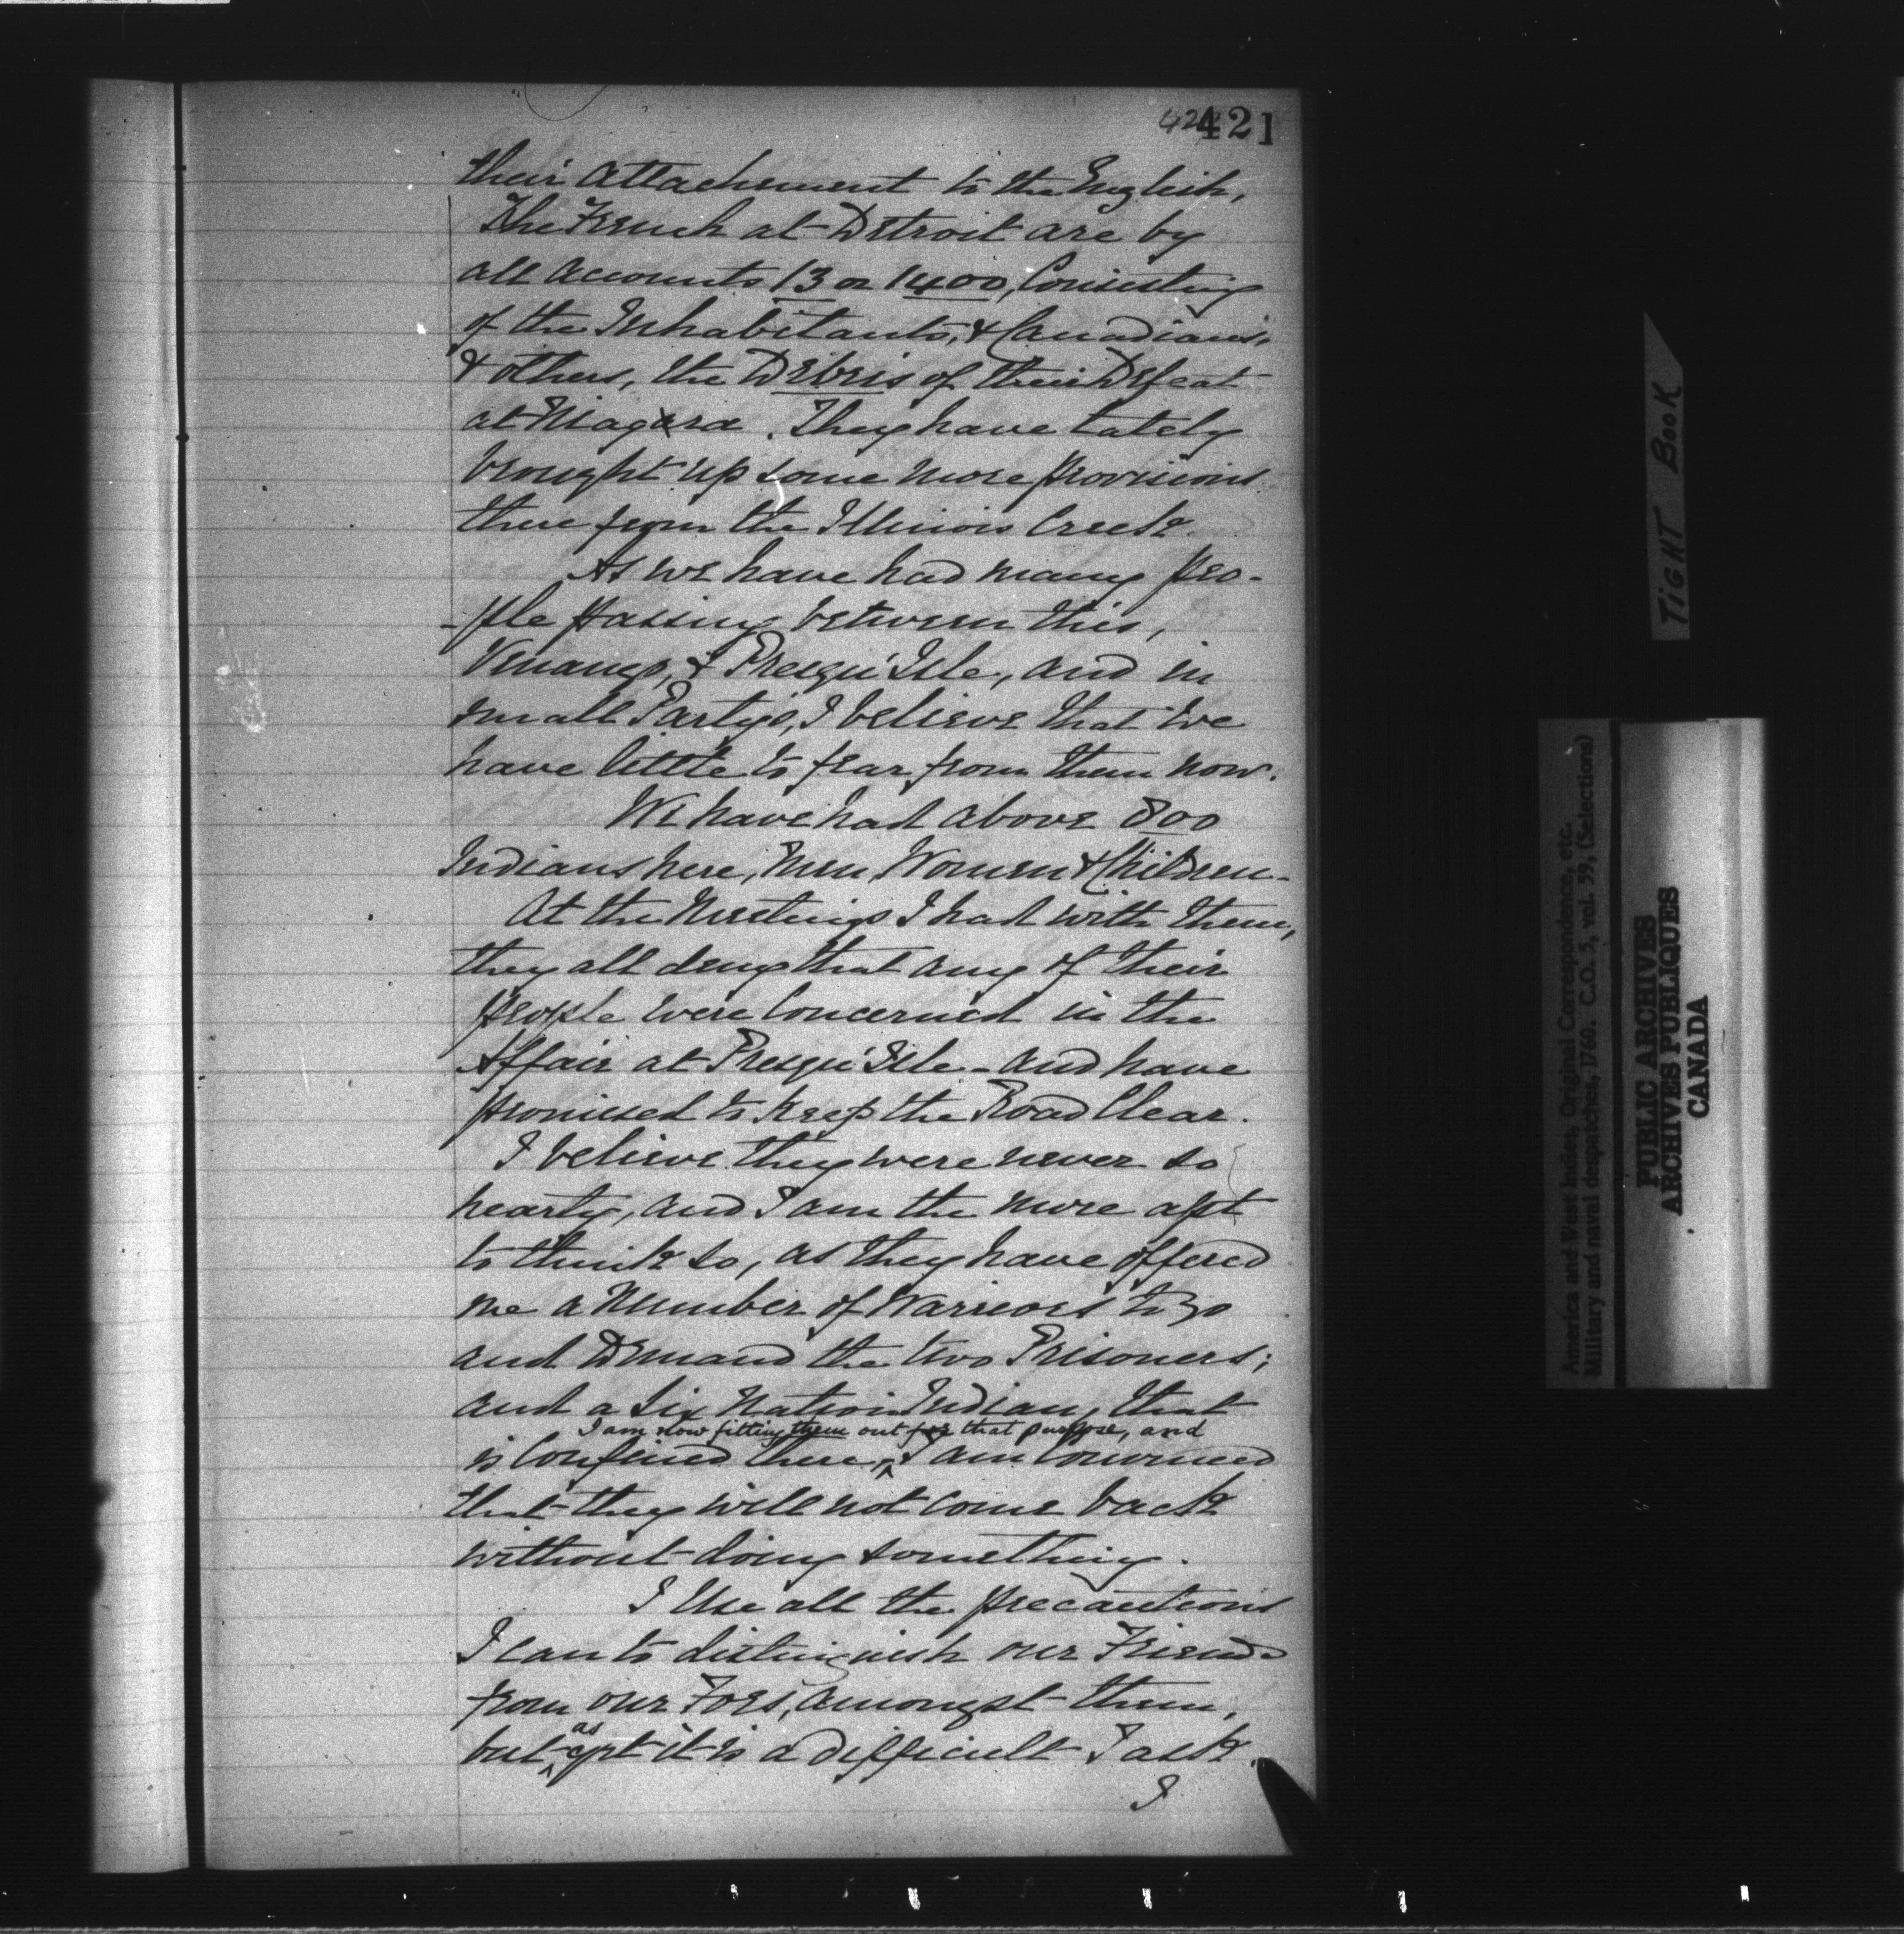 421
their Attachement to the English,
The French at Detroit are by
all accounts 13 or 1400, Consisting
of the Inhabitants, & Canadians,
& others, the Debris of their Defeat
at Niagara. They have Lately
brought up some more provisions
there from the Illinois Creek.
As we have had many peo-
-ple passing between this,
Venango, & Presqu'Isle, and in
small Partys, I believe that we
have little to fear from them now.
We have had above 800
Indians here, Men, Women & Children-
At the Meetings I had with them,
they all deny that any of their
people were Concerned in the
Affair at Presqu'Isle - and have
promised to keep the Road Clear.
I believe they were never so
hearty, and I am the more apt
to think so, as they have offered
me a Number of Warriors to go
and Demand the two Prisoners;
and a Six Nation Indian, that
I am now fitting them out for that purpose, and
is Confined there, I am Convinced
that they will not come back
without doing something.
I Use all the precautions
I can to distinguish our Friends
from our Foes, amongst them,
but as yet it is a difficult Task.
I
TIGHT BOOK
America and West Indies, Original Correspondence, etc.
Military and naval despatches, 1760. C.O. 5, vol. 59, (Selections)
PUBLIC ARCHIVES
ARCHIVES PUBLIQUES
CANADA